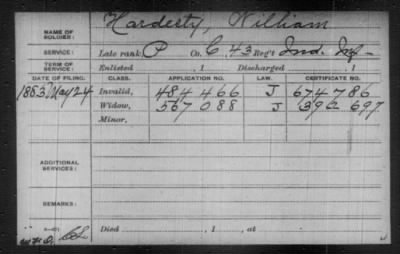 NAME OF SOLDIER: Hardesty, William
SERVICE: Late rank, P Co. C, 43 Reg't Ind. Inf-
TERM OF SERVICE: Enlisted , 1 Discharged , 1
DATE OF FILING. CLASS. APPLICATION NO. LAW. CERTIFICATE NO.
1883 May 24 Invalid, 484 466 J 674 786
Widow, 567 088 J 392 697
Minor,
ADDITIONAL SERVICES:
REMARKS:
Died , 1 , at